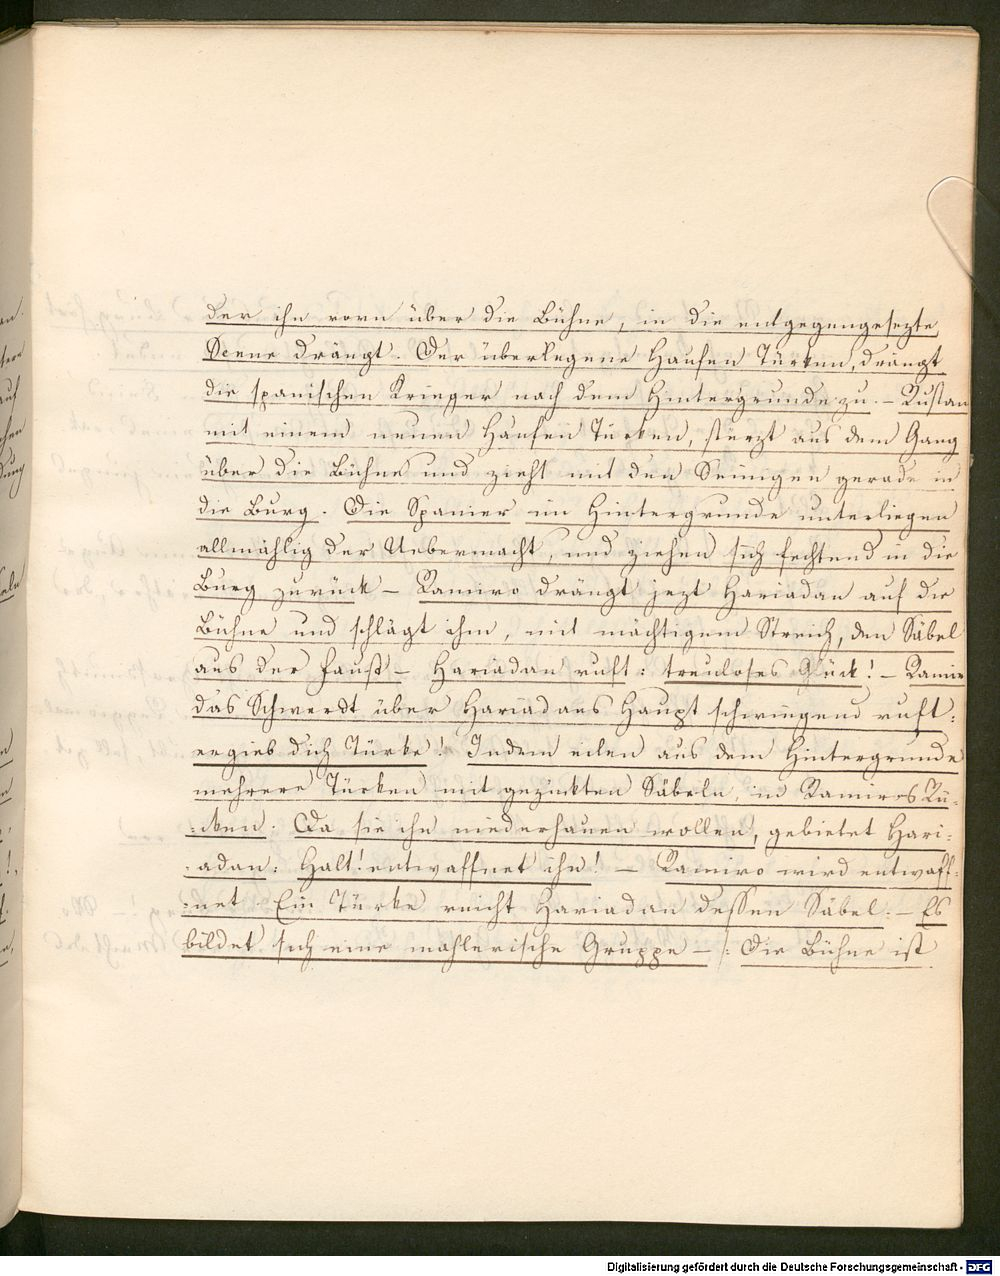 der ihn vorn über die Bühne, in die entgegengesezte
Scene drängt. Der überlegene Haufen Türken, drängt
die spanischen Krieger nach dem Hintergrunde zu. – Rustan
mit einem neuen Haufen Türken, stürzt aus dem Gang
über die Bühne und zieht mit den Seinigen gerade in
die Burg. Die Spanier im Hintergrunde unterliegen
allmählig der Uebermacht, und ziehen sich fechtend in die
Burg zurück – Ramiro drängt jezt Hariadan auf die
Bühne und schlägt ihm, mit mächtigem Streich, den Säbel
aus der Faust – Hariadan ruft: treuloses Glück! – Ramir
das Schwerdt über Hariadans Haupt schwingend ruft:
ergieb dich Türke! Indem eilen aus dem Hintergrunde
mehrere Türken mit gezückten Säbeln, in Ramiros Rü-
:cken. Da sie ihn niederhauen wollen, gebietet Hari:
:adan: Halt! entwaffnet ihn! – Ramiro wird entwaff:
:net. Ein Türke reicht Hariadan dessen Säbel. – Es
bildet sich eine mahlerische Gruppe – /: Die Bühne ist
Digitalisierung gefördert durch die Deutsche Forschungsgemeinschaft - DFG